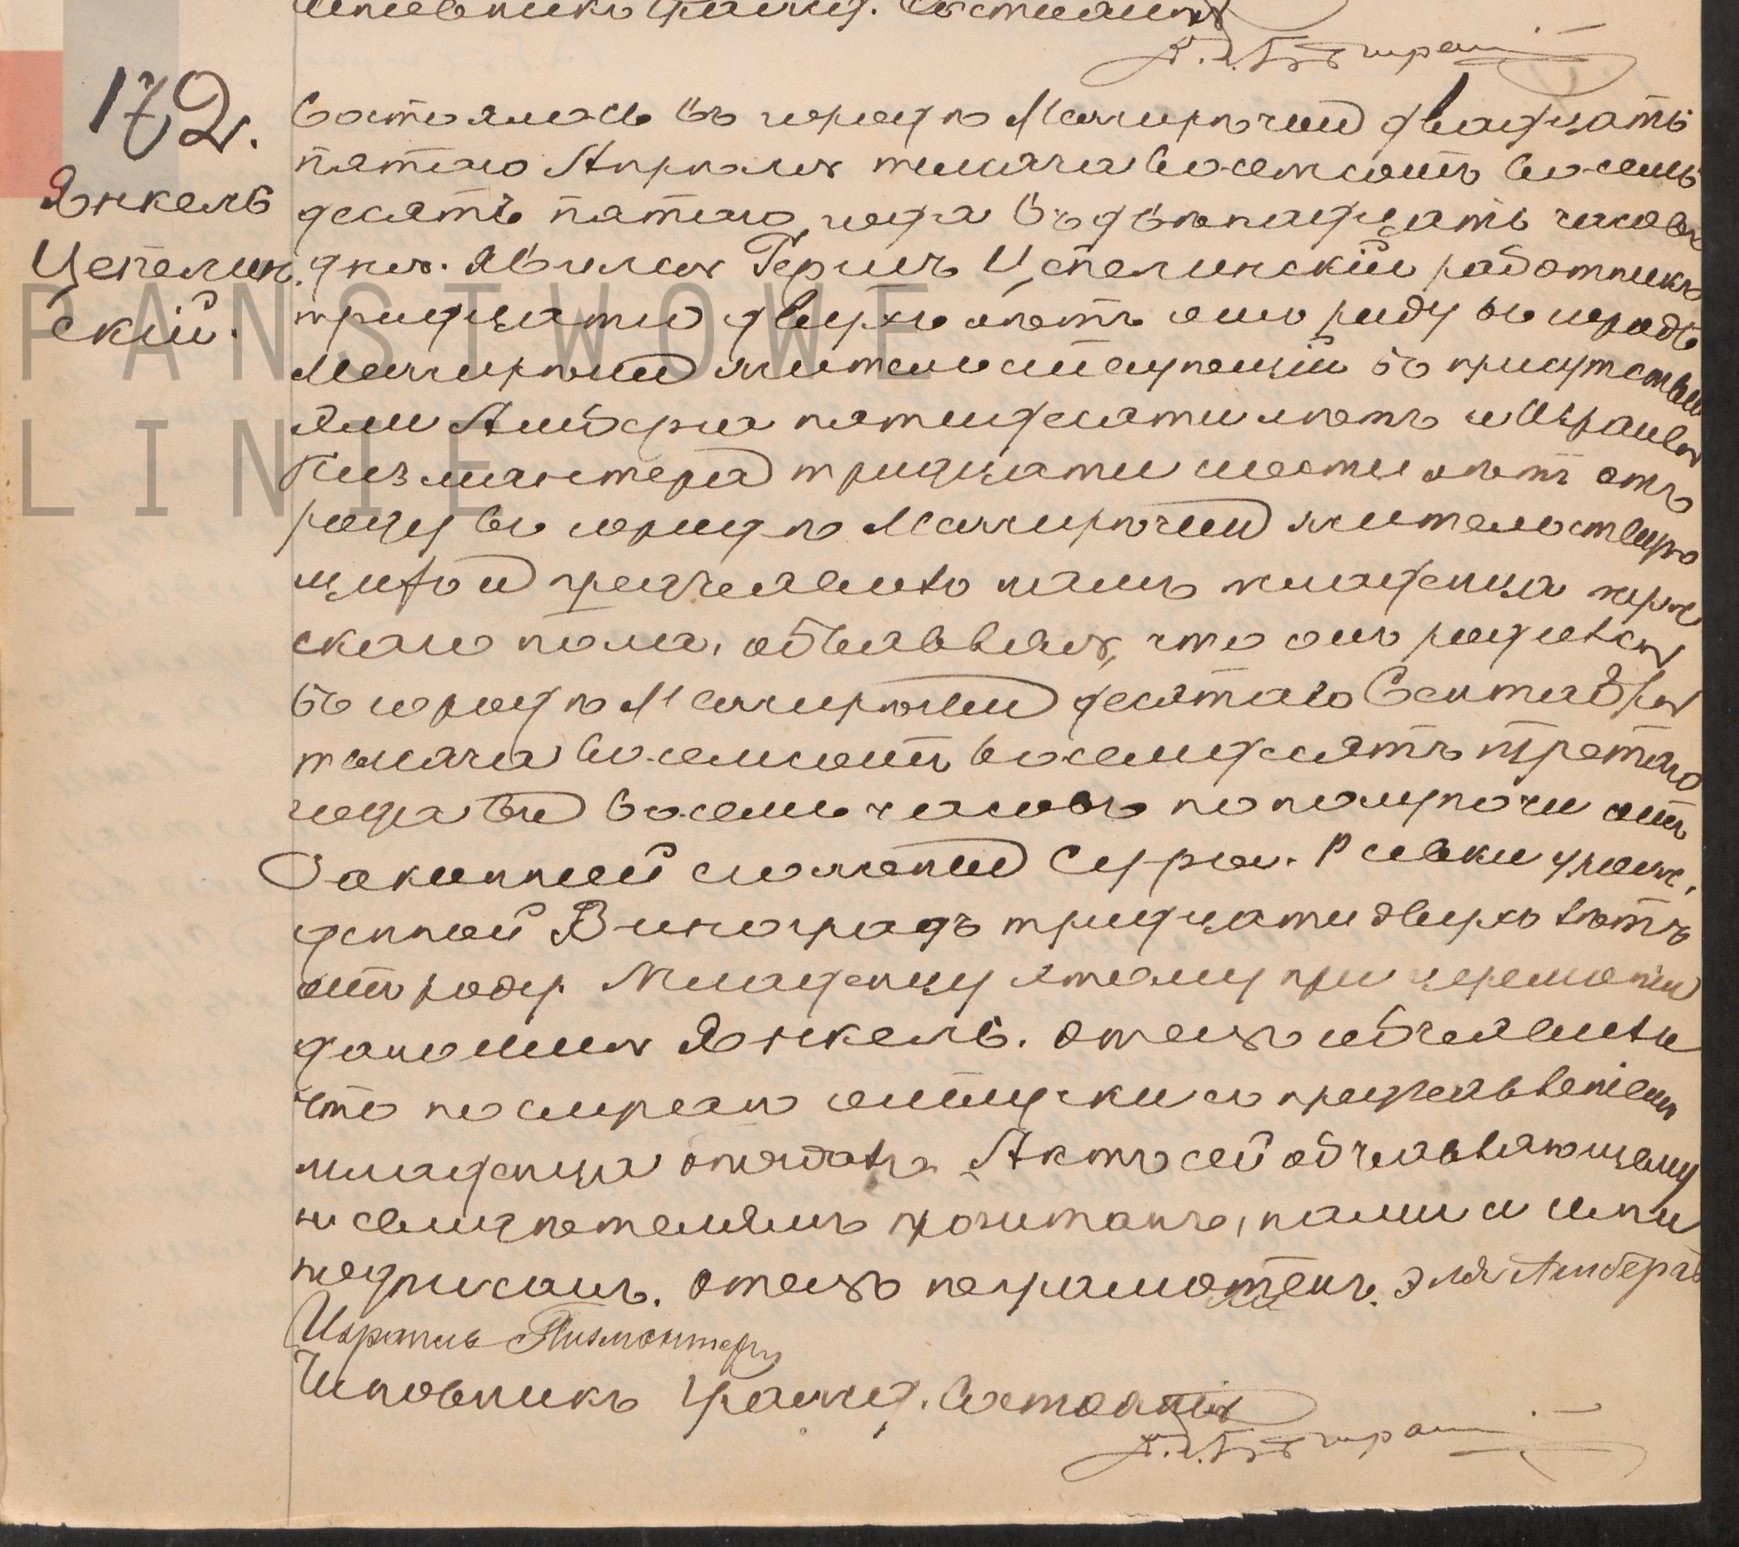 Чиновникъ Гражд. Состоянія
172.
Янкель
Цепелин.
скій.
Состоялось въ городѣ двадцать
пятаго Апрѣля тысяча восемсотъ восемь
десятъ пятаго года въ двѣнадцать часовъ
дня. Явился Гершъ Цепелинскій работникъ
тридцати двухъ лѣтъ отъ роду въ городѣ
жительствующій въ присутствіи
Эли Амбера пятидесяти лѣтъ и Израиля
Пизмантера тридцати шести лѣтъ отъ
роду въ городѣ жительствую
щихъ и предъявилъ намъ младенца муж
скаго пола, объявляя, что онъ родился
въ городѣ десятаго Сентября
тысяча восемсотъ восемдесятъ третяго
года въ восемь часовъ по полуночи отъ
Законной его жены Суры-Ривки урож.
денной Виноградъ тридцати двухъ лѣтъ
отъ роду. Младенцу этому при
дано имя Янкель. Отецъ объявилъ
что по съ предъявленіемъ
младенца опоздалъ. Актъ сей объявляющему
и свидѣтелямъ прочитанъ, нами и ими
подписанъ. Отецъ неграмотенъ. Эля Амберъ
Израиль Пизмантеръ
Чиновникъ Гражд. Состоянія
PAŃSTWOWE
LINIE